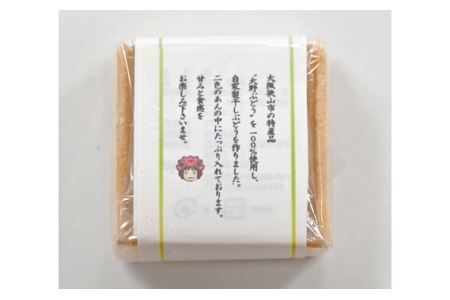 大阪狭山市の特産品
"大野ぶどう"を一〇〇%使用し、
自家製干しぶどうを作りました。
二色のあんの中にたっぷり入れております。
甘みと食感を
お楽しみ下さいませ。